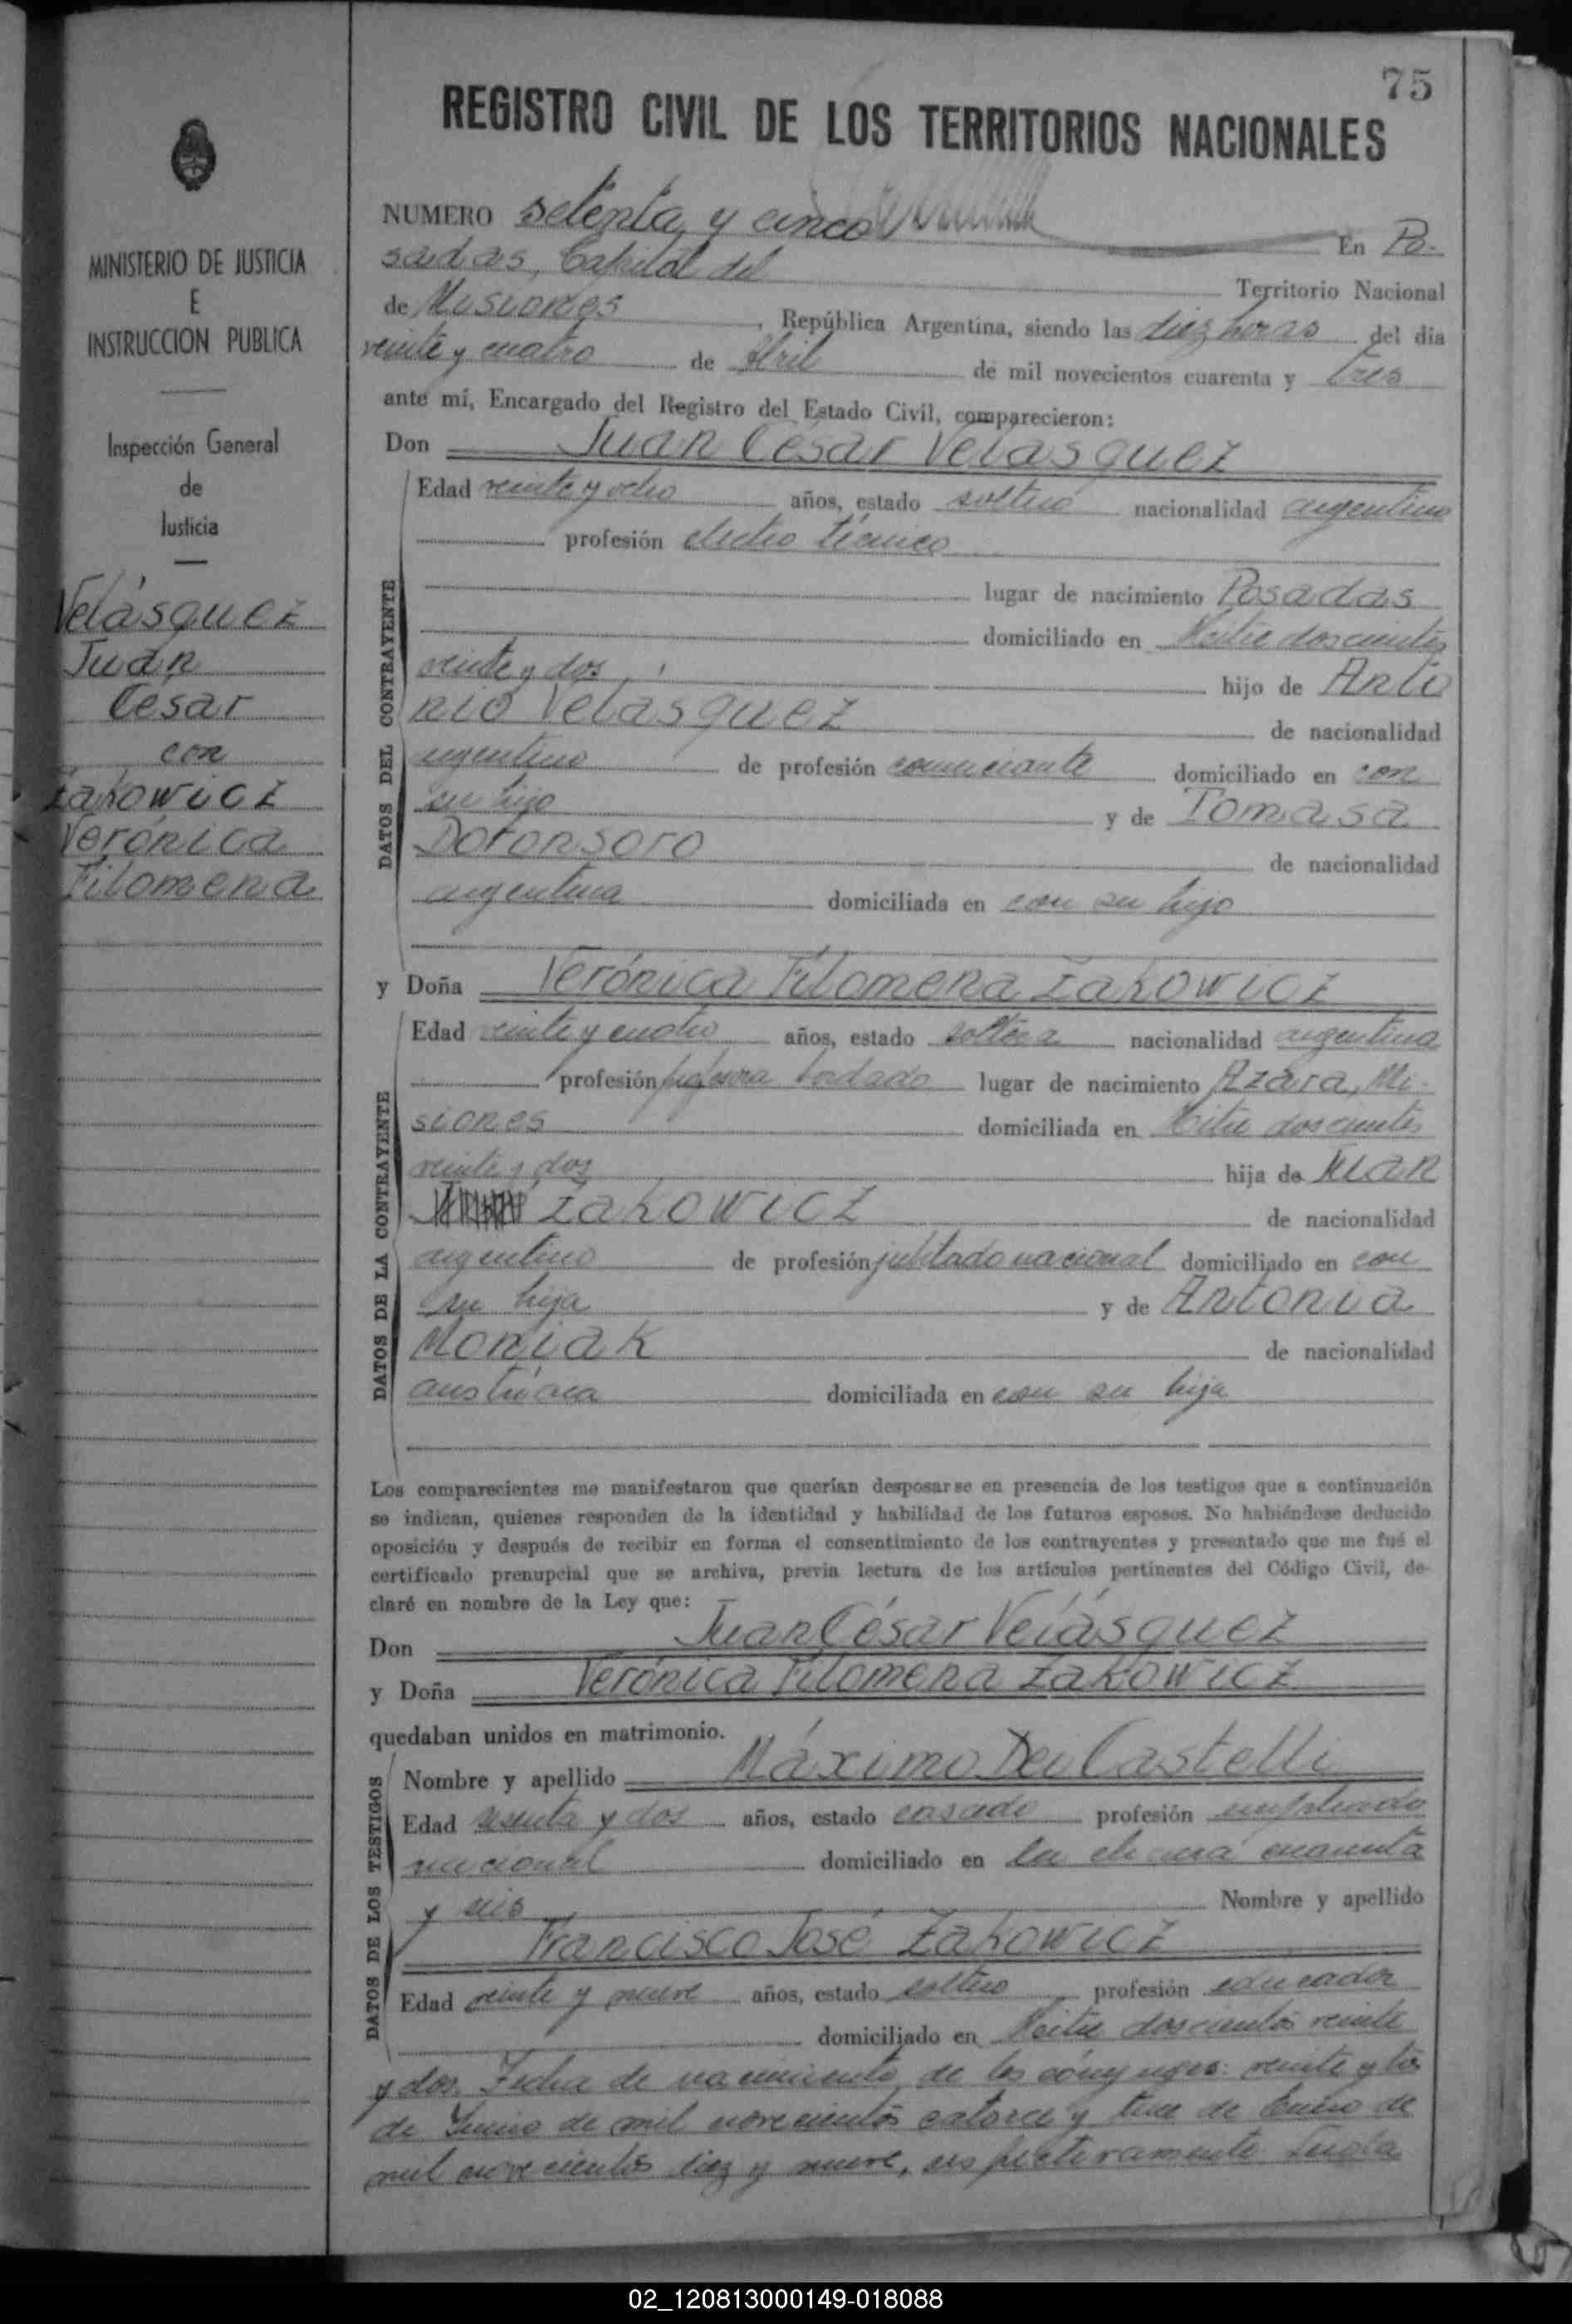 75
REGISTRO CIVIL DE LOS TERRITORIOS NACIONALES
MINISTERIO DE JUSTICIA
E
INSTRUCCION PUBLICA
Inspección General
de
Justicia
Velásquez
Juan
César
con
Zakowicz
Verónica
Filomena
NUMERO setenta y cinco En Po-
sadas, Capital del Territorio Nacional
de Misiones, República Argentina, siendo las diez horas del día
veinte y cuatro de Abril de mil novecientos cuarenta y tres
ante mí, Encargado del Registro del Estado Civil, comparecieron:
Don Juan César Velásquez
DATOS DEL CONTRAYENTE
Edad veinte y ocho años, estado soltero nacionalidad argentino
profesión electro técnico
lugar de nacimiento Posadas
domiciliado en Mitre doscientos
veinte y dos hijo de Anto
nio Velasquez de nacionalidad
argentino de profesión comerciante domiciliado en con
su hijo y de Tomasa
Doronsoro de nacionalidad
argentina domiciliada en con su hijo
y Doña Verónica Filomena Zakowicz
DATOS DE LA CONTRAYENTE
Edad veinte y cuatro años, estado soltera nacionalidad argentina
profesión profesora bordado lugar de nacimiento Azara, Mi-
siones domiciliada en Mitre doscientos
veinte y dos hija de Juan
Zakowicz de nacionalidad
argentino de profesión jubilado nacional domiciliado en con
su hija y de Antonia
Moniak de nacionalidad
austriaca domiciliada en con su hija
Los comparecientes me manifestaron que querían desposarse en presencia de los testigos que a continuación
se indican, quienes responden de la identidad y habilidad de los futuros esposos. No habiéndose deducido
oposición y después de recibir en forma el consentimiento de los contrayentes y presentado que me fué el
certificado prenupcial que se archiva, previa lectura de los artículos pertinentes del Código Civil, de-
claré en nombre de la Ley que:
Don Juan César Velásquez
y Doña Verónica Filomena Zakowicz
quedaban unidos en matrimonio.
DATOS DE LOS TESTIGOS
Nombre y apellido Máximo Dei Castelli
Edad sesenta y dos años, estado casado profesión empleado
nacional domiciliado en la chacra cuarenta
y seis Nombre y apellido
Francisco José Zakowicz
Edad veinte y nueve años, estado soltero profesión educador
domiciliado en Mitre doscientos veinte
y dos. Fecha de nacimiento de los cónyuges: veinte y tres
de Junio de mil novecientos catorce y trece de Enero de
mil novecientos diez y nueve, respectivamente.
02_120813000149-018088